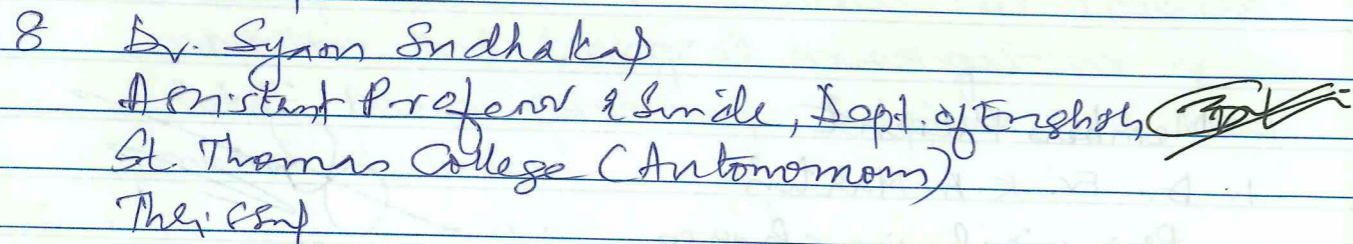 8 Dr. Syam Sudhakar
Assistant Professor & Guide, Dept. of English
St. Thomas College (Autonomous)
Thrissur